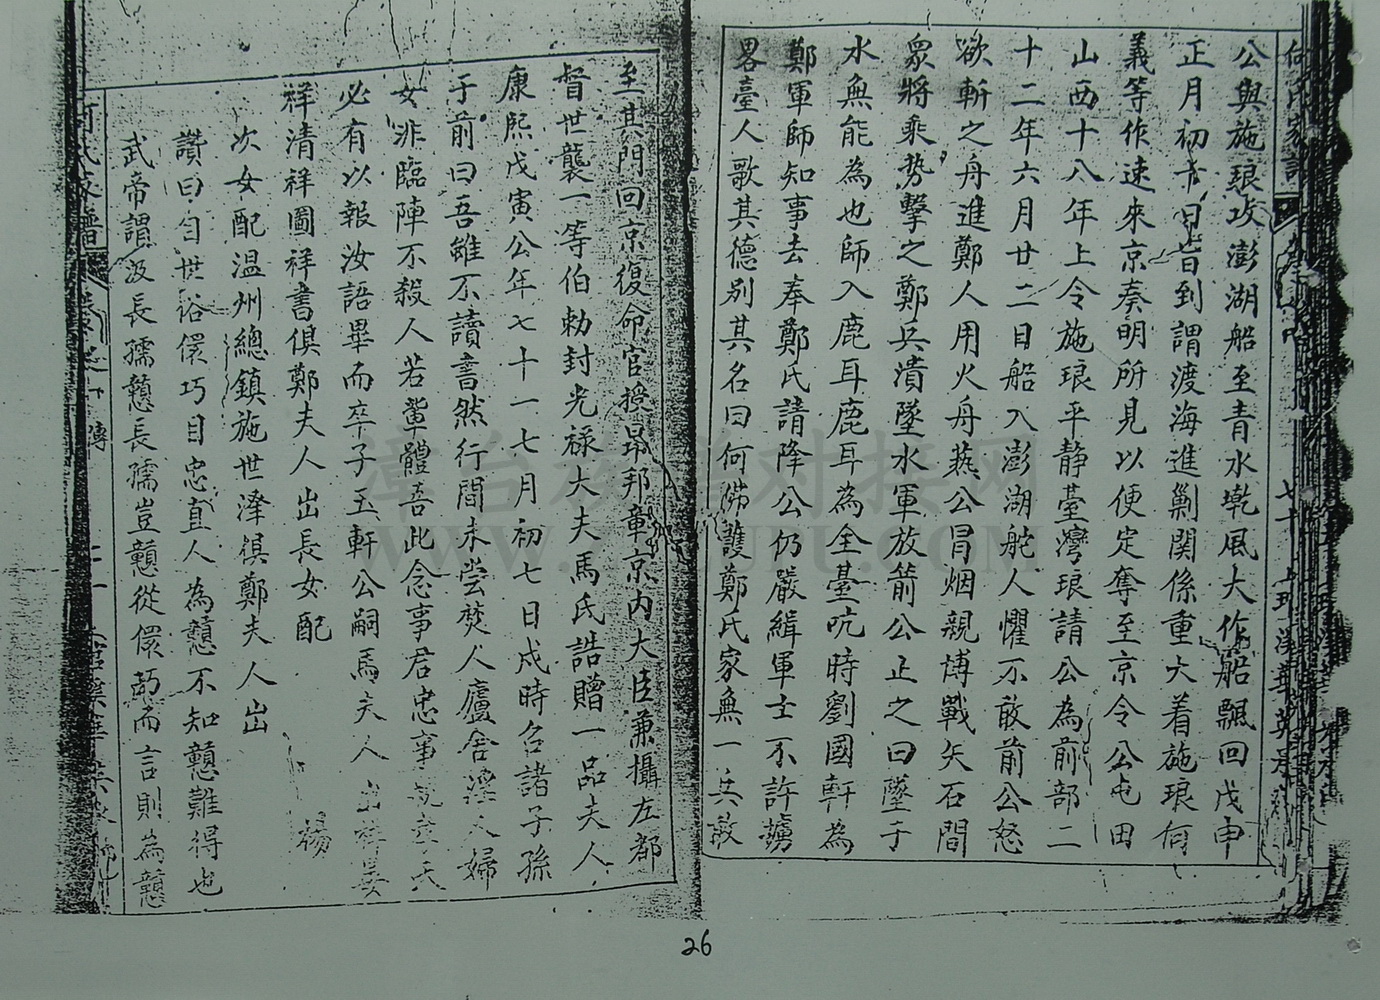 公與施琅攻澎湖船至青水墘風大作船飄回戊申
正月初十日旨到謂渡海進剿關係重大着施琅何
義等作速來京奏明所見以便定奪至京令公屯田
山西十八年上令施琅平靜臺灣琅請公為前部二
十二年六月廿二日船入澎湖舵人懼不敢前公怒
欲斬之舟進鄭人用火舟燕公冒烟親博戰矢石間
眾將乘势擊之鄭兵潰墜水軍放箭公止之曰墜于
水無能為也師入鹿耳鹿耳為全臺吭時劉國軒為
鄭軍師知事去奉鄭氏請降公仍嚴緝軍士不許擄
畧臺人歌其德别其名曰何佛護鄭氏家無一兵敢
至其門回京復命官授昂邦章京内大臣兼攝左都
督世襲一等伯勅封光禄大夫馬氏誥贈一品夫人
康熙戊寅公年七十一七月初七日戍時名諸子孫
于前曰吾雖不讀書然行間未尝焚人廬舍滛人婦
女非臨陣不殺人若輩體吾此念事君忠事
必有以報汝語畢而卒子五軒公嗣馬夫人出
祥清祥圖祥書俱鄭夫人出長女配
次女配温州總鎮施世澤俱鄭夫人出
讚曰自世俗儇巧目忠直人為戇不知戇難得也
武帝謂汲長孺戇長孺豈戇從儇薄而言則為戇
26